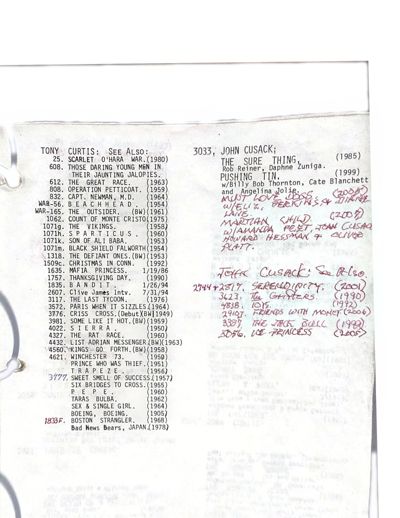 TONY CURTIS: SEE ALSO:
25. SCARLET O'HARA WAR.(1980)
608. THOSE DARING YOUNG MEN IN
THEIR JAUNTING JALOPIES.
612. THE GREAT RACE. (1963)
808. OPERATION PETTICOAT. (1959)
832. CAPT. NEWMAN, M.D. (1964)
WAR-56. B E A C H H E A D. (1954)
WAR-165. THE OUTSIDER. (BW)(1961)
1062. COUNT OF MONTE CRISTO(1975)
1071g. THE VIKINGS. (1958)
1071h. S P A R T I C U S. (1960)
1071k. SON OF ALI BABA. (1953)
1071m. BLACK SHIELD FALWORTH(1954)
1318. THE DEFIANT ONES.(BW)(1953)
1509c. CHRISTMAS IN CONN. (1992)
1635. MAFIA PRINCESS. 1/19/86
1757. THANKSGIVING DAY. (1990)
1835. B A N D I T. 1/26/94
2607. Clive James Intv. 7/31/94
3117. THE LAST TYCOON. (1976)
3572. PARIS WHEN IT SIZZLES.(1964)
3776. CRISS CROSS.(Debut)(BW)(1949)
3981. SOME LIKE IT HOT.(BW)(1959)
4022. S I E R R A. (1950)
4327. THE RAT RACE. (1960)
4432. LIST ADRIAN MESSENGER(BW)(1963)
4560. KINGS GO FORTH.(BW)(1958)
4621. WINCHESTER 73. (1950)
PRINCE WHO WAS THIEF.(1951)
T R A P E Z E. (1956)
3777. SWEET SMELL OF SUCCESS(1957)
SIX BRIDGES TO CROSS.(1955)
P E P E. (1960)
TARAS BULBA. (1962)
SEX & SINGLE GIRL. (1964)
BOEING, BOEING. (1905)
1833F. BOSTON STRANGLER. (1968)
Bad News Bears, JAPAN.(1978)
3033, JOHN CUSACK;
THE SURE THING, (1985)
Rob Reiner, Daphne Zuniga.
PUSHING TIN. (1999)
w/Billy Bob Thornton, Cate Blanchett
and Angelina Jolie.
MUST LOVE DOGS (2005)
W/ELIZ. PERKINS & DIANE
LANE
MARTIAN CHILD
W/AMANDA PEET, JOAN CUSACK
HOWARD HESSMAN & OLIVER
PLATT.
JOHN CUSACK: See Also.
2817. SERENDIPITY. (2001)
3623. THE GRIFTERS. (1990)
FRIENDS WITH MONEY (2006)
THE JACK BULL
ICE PRINCESS (2005)